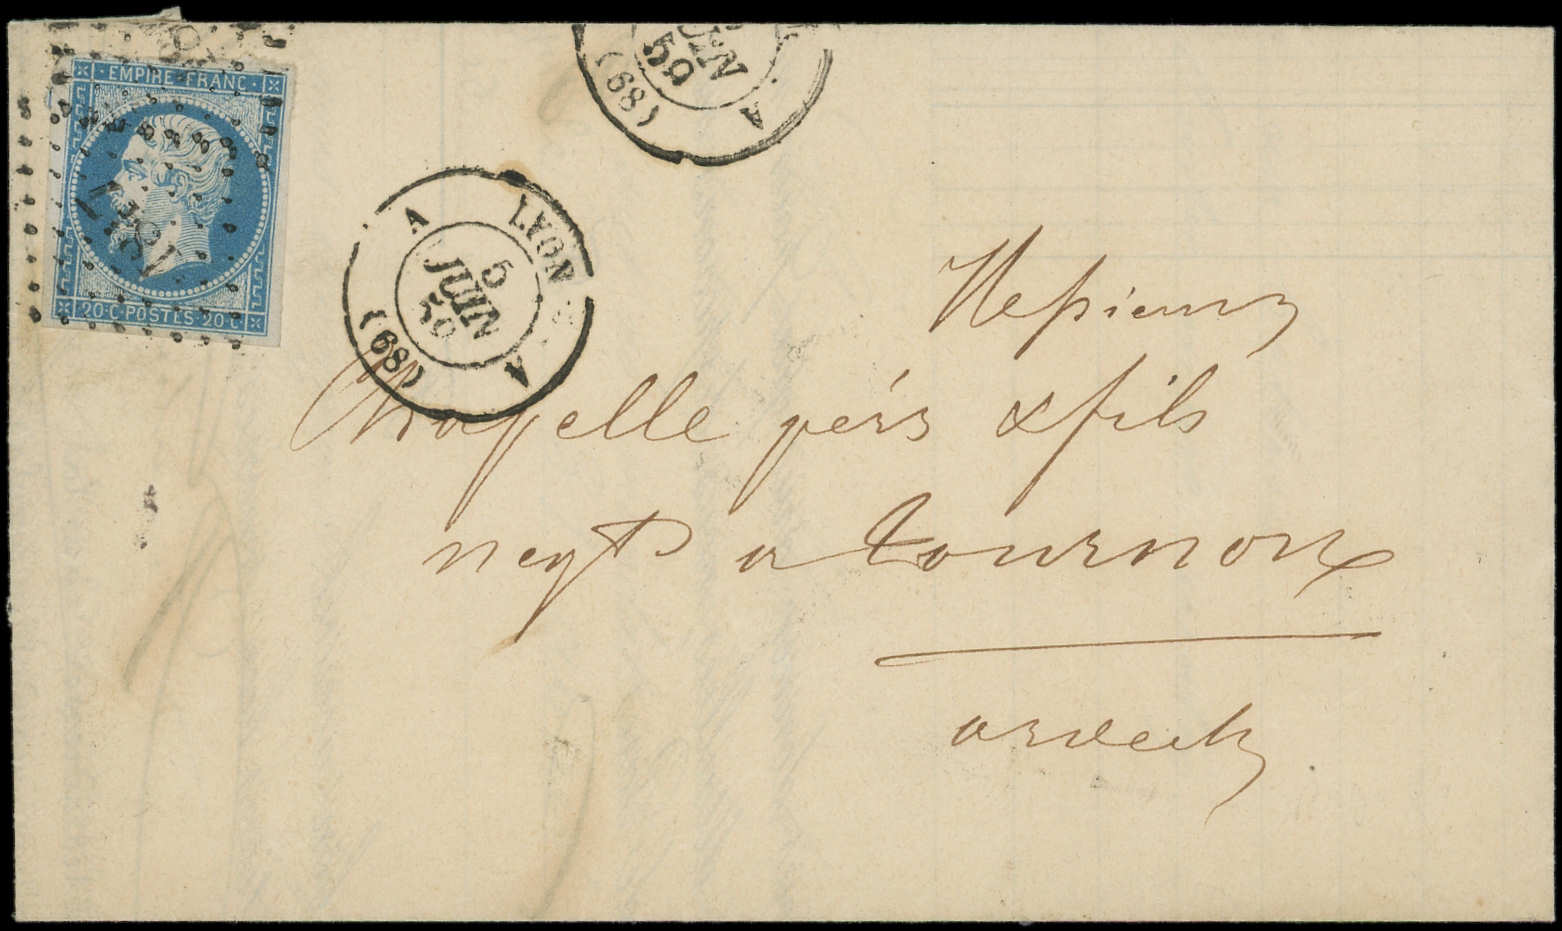 EMPIRE FRANC
20·C·POSTES 20·C
1817
JUIN
59
(68)
A
A LYON A
5
JUIN
59
(68)
Messieurs
Chapelle pérs & fils
negts a tournon
ardech